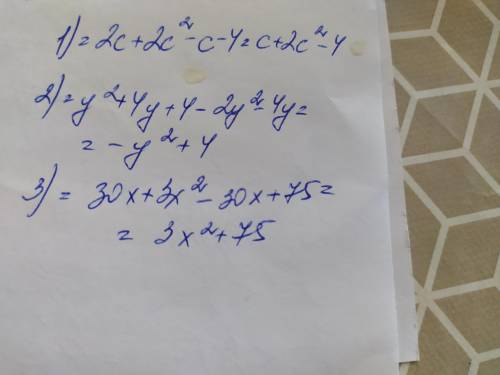 1) = 2c + 2c² - c - 4 = c + 2c² - 4
2) = y² + 4y + 4 - 2y² - 4y =
= - y² + 4
3) = 30x + 3x² - 30x + 75 =
= 3x² + 75